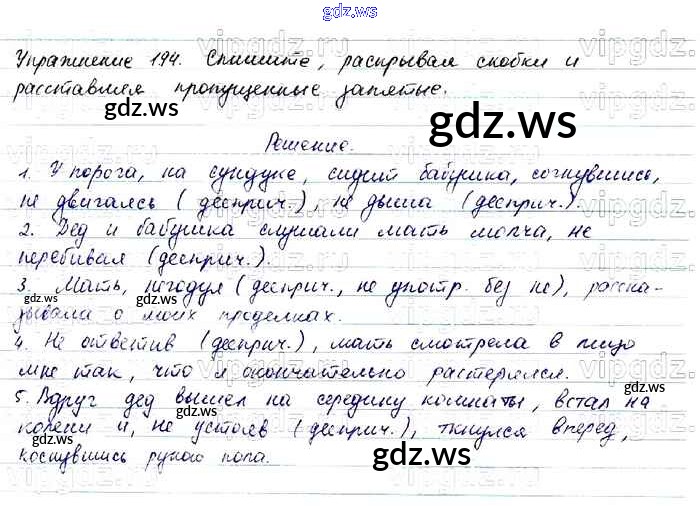 gdz.ws
Упражнение 194. Спишите, раскрывая скобки и
расставляя пропущенные запятые.
gdz.ws
gdz.ws
Решение.
1. У порога, на сундуке, сидит бабушка, согнувшись,
не двигаясь (дееприч.), не дыша (дееприч.).
gdz.ws
gdz.ws
2. Дед и бабушка слушали мать молча, не
перебивая (дееприч.).
3. Мать, негодуя (дееприч., не употр. без не), расска-
gdz.ws
gdz.ws
зывала о моих проделках.
4. Не ответив (дееприч.), мать смотрела в лицо
мне так, что я окончательно растерялся.
gdz.ws
5. Вдруг дед вышел на середину комнаты, встал на
колени и, не устояв (дееприч.), ткнулся вперед,
gdz.ws
gdz.ws
коснувшись рукою пола.